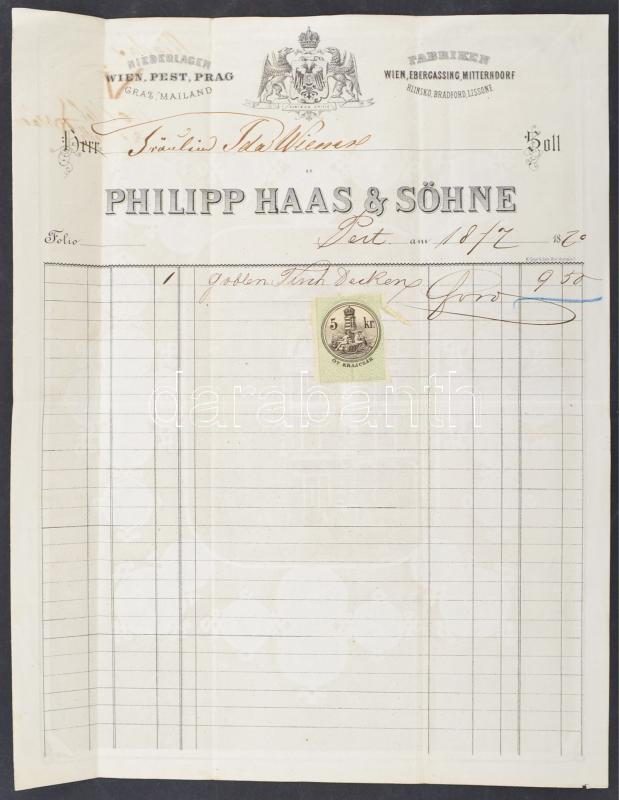 NIEDERLAGEN
WIEN, PEST, PRAG
GRAZ, MAILAND
FABRIKEN
WIEN, EBERGASSING, MITTERNDORF
HLINSKO, BRADFORD, LISSONE
Herr Fräulein Ida Wiener Soll
an
PHILIPP HAAS & SÖHNE
Folio Pest am 18/7 1870
1 goblen Tisch Decken 9 50
5 kr.
ÖT KRAJCZÁR
darabanth